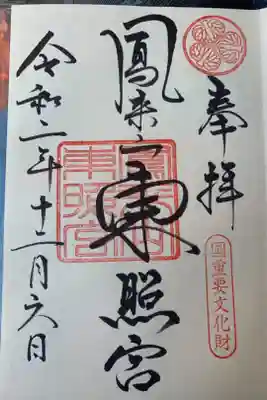 奉拝
国重要文化財
鳳来山東照宮
令和二年十二月六日